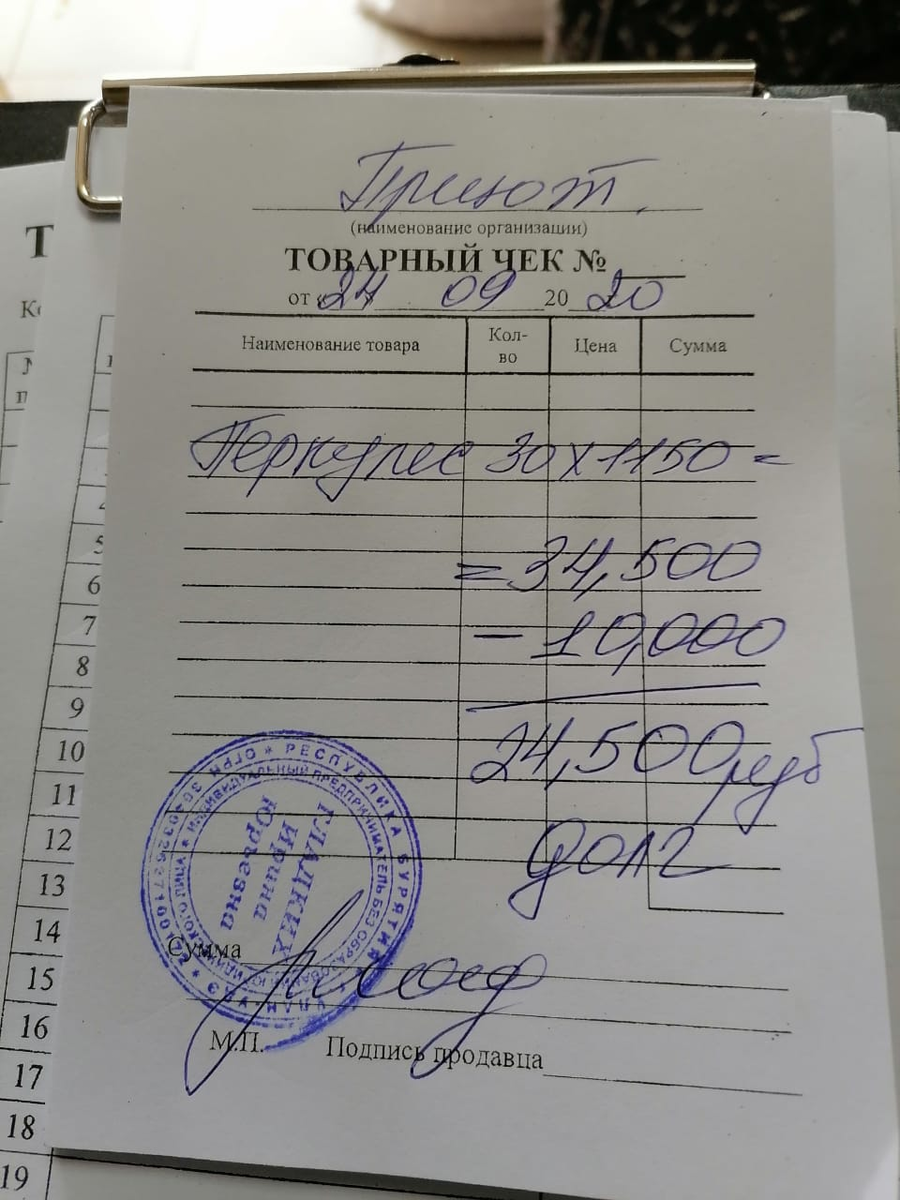 Приют.
(наименование организации)
ТОВАРНЫЙ ЧЕК №
от «24» 09 2020
Наименование товара Кол-во Цена Сумма
Геркулес 30 х 1150 =
= 34,500
- 10,000
24,500 руб
долг
РЕСПУБЛИКА БУРЯТИЯ * Г. УЛАН-УДЭ * ОГРН
ИНДИВИДУАЛЬНЫЙ ПРЕДПРИНИМАТЕЛЬ БЕЗ ОБРАЗОВАНИЯ ЮРИДИЧЕСКОГО ЛИЦА *
ГЛАДКИХ
Ирина
Юрьевна
Сумма
М.П. Подпись продавца
5
6
7
8
9
10
11
12
13
14
15
16
17
18
19